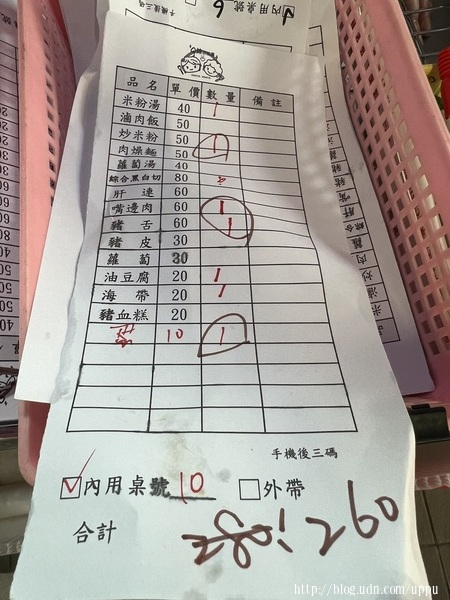 內用桌號 6
手機後三碼
品名 單價 數量 備註
米粉湯 40 1
滷肉飯 50
炒米粉 50
肉燥麵 50 1
蘿蔔湯 40
綜合黑白切 80
肝連 60
嘴邊肉 60 1
豬舌 60 1
豬皮 30
蘿蔔 30
油豆腐 20 1
海帶 20 1
豬血糕 20
10 1
手機後三碼
內用桌號 10 外帶
合計 260
http://blog.udn.com/uppu